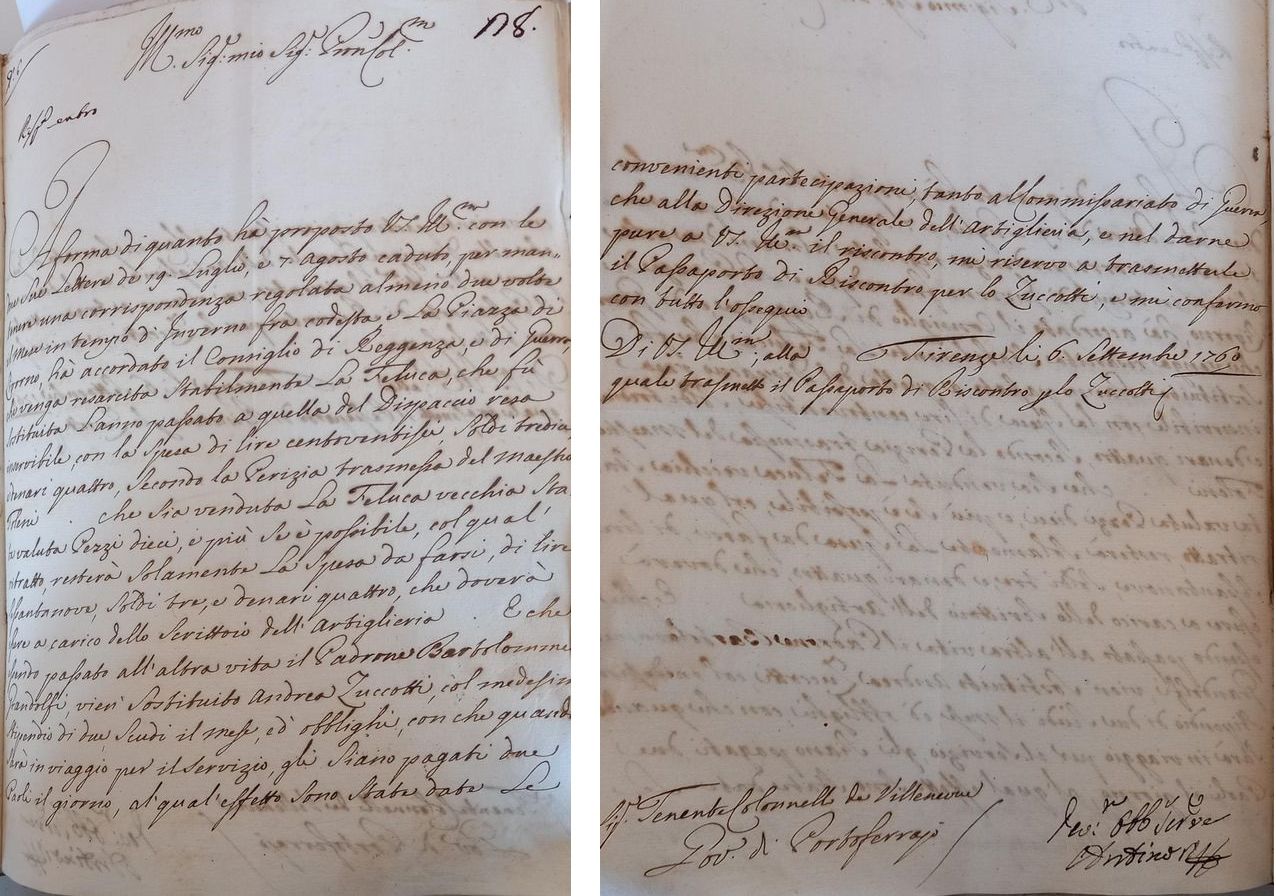 178.
Ill.mo Sig.r mio Sig.r Pron Col.mo
Risp.a entro
A forma di quanto hà proposto V.S. Ill.ma con le
due sue Lettere de 19. Luglio, e 7. Agosto caduto, per man-
tenere una corrispondenza regolata almeno due volte
il mese in tempo d'Inverno fra codesta e La Piazza di
Livorno, hà accordato il Consiglio di Reggenza, e di Guerra,
che venga resarcita Stabilmente La Feluca, che fù
sostituita L'anno passato a quella del Dispaccio resa
inservibile, con la Spesa di lire centoventisei, Soldi tredici,
e denari quattro, Secondo la Perizia trasmessa del maestro
che Sia venduta La Feluca vecchia Sta
ta valuta Pezzi dieci, e più Se è possibile, col qual'
ritratto, resterà Solamente La Spesa da farsi, di lire
Sessantanove, Soldi tre, e denari quattro, che doverà
essere a carico dello Scrittoio dell'Artiglieria E che
essendo passato all'altra vita il Padrone Bartolomme
Pandolfi, vien' Sostituito Andrea Zuccotti, col medesim
Stipendio di due Scudi il mese, ed obblighi, con che quando
sarà in viaggio per il Servizio, gli Siano pagati due
Paoli il giorno, al qual'effetto Sono State date Le
convenienti partecipazioni, tanto al Commissariato di Guerra,
che alla Direzione Generale dell'Artiglieria, e nel darne
pure a V.S. Ill.ma il riscontro, mi riservo a trasmetterle
il Passaporto di Riscontro per lo Zuccotti, e mi confermo
con tutto l'ossequio
Di V.S. Ill.ma, alla Firenze li 6. Settembre 1760
quale trasmett il Passaporto di Riscontro p lo Zuccotti
Sig.r Tenente Colonnell de Villeneuve
Gov.r di Portoferrajo
Dev.mo Obb Serv.re